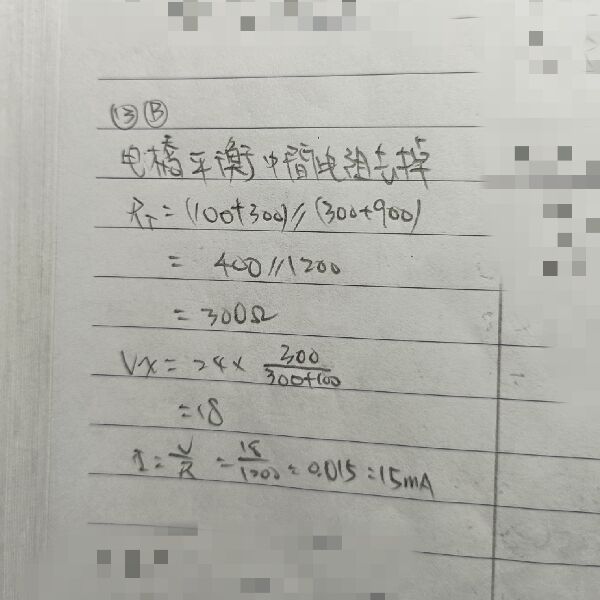 ⑬ Ⓑ
电橋平衡中間电阻去掉
R_T = (100+300)//(300+900)
= 400//1200
= 300Ω
Vx = 24 × 300/(300+100)
= 18
I = V/R = 18/1200 = 0.015 = 15mA